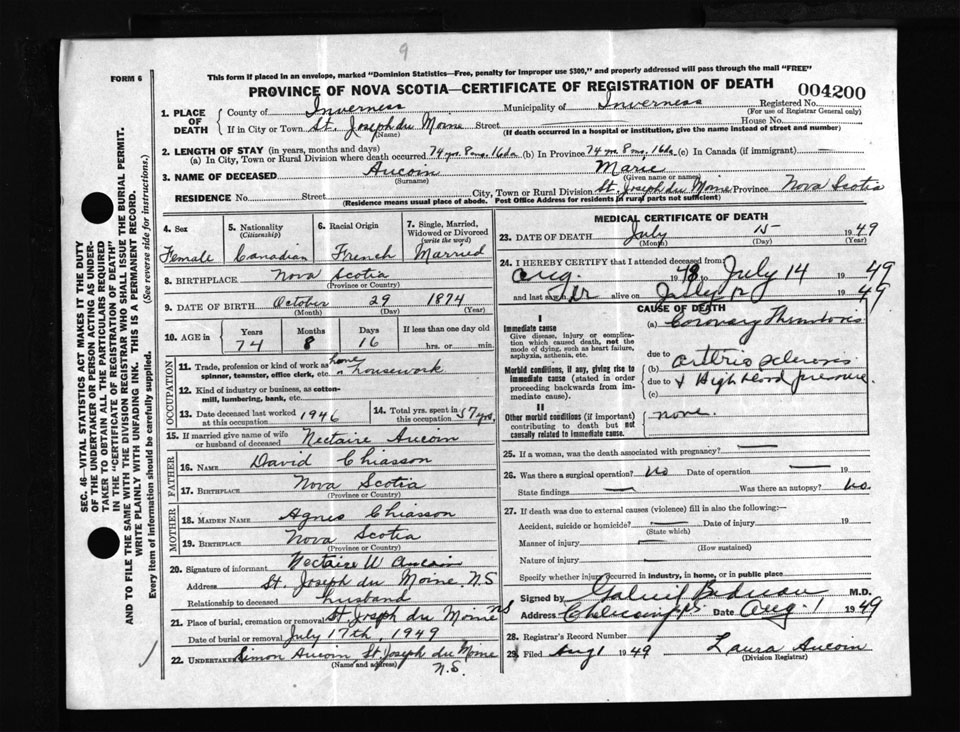 9
FORM 6
This form if placed in an envelope, marked "Dominion Statistics—Free, penalty for improper use $300," and properly addressed will pass through the mail "FREE"
PROVINCE OF NOVA SCOTIA—CERTIFICATE OF REGISTRATION OF DEATH
004200
1. PLACE OF DEATH
County of Inverness Municipality of Inverness Registered No.
(For use of Registrar General only)
If in City or Town St. Joseph du Moine Street House No.
(Name) (If death occurred in a hospital or institution, give the name instead of street and number)
2. LENGTH OF STAY (in years, months and days)
(a) In City, Town or Rural Division where death occurred 74 yrs. 8 mo. 16 da (b) In Province 74 yrs. 8 mo. 16 da (c) In Canada (if immigrant) —
3. NAME OF DECEASED Aucoin Marie
(Surname) (Given name or names)
RESIDENCE No. Street City, Town or Rural Division St. Joseph du Moine Province Nova Scotia
(Residence means usual place of abode. Post Office Address for residents in rural parts not sufficient)
4. Sex
Female
5. Nationality
(Citizenship)
Canadian
6. Racial Origin
French
7. Single, Married, Widowed or Divorced
(write the word)
Married
8. BIRTHPLACE Nova Scotia
(Province or Country)
9. DATE OF BIRTH October 29 1874
(Month) (Day) (Year)
10. AGE in
Years Months Days If less than one day old
74 8 16 hrs. or min.
OCCUPATION
11. Trade, profession or kind of work as spinner, teamster, office clerk, etc. home housework
12. Kind of industry or business, as cotton-mill, lumbering, bank, etc.
13. Date deceased last worked at this occupation 1946
14. Total yrs. spent in this occupation 57 yrs.
15. If married give name of wife or husband of deceased Nectaire Aucoin
FATHER
16. NAME David Chiasson
17. BIRTHPLACE Nova Scotia
(Province or Country)
MOTHER
18. MAIDEN NAME Agnes Chiasson
19. BIRTHPLACE Nova Scotia
(Province or Country)
20. Signature of informant Nectaire W Aucoin
Address St. Joseph du Moine, N.S
Relationship to deceased husband
21. Place of burial, cremation or removal St. Joseph du Moine NS
Date of burial or removal July 17th, 1949
22. UNDERTAKER Simon Aucoin, St. Joseph du Moine
(Name and address) N.S.
MEDICAL CERTIFICATE OF DEATH
23. DATE OF DEATH July 15 1949
(Month) (Day) (Year)
24. I HEREBY CERTIFY that I attended deceased from:
Aug. 1948 to July 14 1949
and last saw her alive on July 12 1949
CAUSE OF DEATH
I
Immediate cause
Give disease, injury or complication which caused death, not the mode of dying, such as heart failure, asphyxia, asthenia, etc.
(a) Coronary Thrombosis
due to
Morbid conditions, if any, giving rise to immediate cause (stated in order proceeding backwards from immediate cause).
(b) arterio sclerosis
due to & High blood pressure.
(c)
II
Other morbid conditions (if important) contributing to death but not causally related to immediate cause.
none.
25. If a woman, was the death associated with pregnancy? —
26. Was there a surgical operation? No Date of operation — 19
State findings — Was there an autopsy? No.
27. If death was due to external causes (violence) fill in also the following:—
Accident, suicide or homicide? — Date of injury 19
(State which)
Manner of injury —
(How sustained)
Nature of injury —
Specify whether injury occurred in industry, in home, or in public place
Signed by M.D.
Address Cheticamp NS Date Aug. 1 1949
28. Registrar's Record Number
29. Filed Aug 1 1949 Laura Aucoin
(Division Registrar)
SEC. 46—VITAL STATISTICS ACT MAKES IT THE DUTY
OF THE UNDERTAKER OR PERSON ACTING AS UNDERTAKER TO OBTAIN ALL THE PARTICULARS REQUIRED
IN THE "CERTIFICATE OF REGISTRATION OF DEATH"
AND TO FILE THE SAME WITH THE DIVISION REGISTRAR WHO SHALL ISSUE THE BURIAL PERMIT.
WRITE PLAINLY WITH UNFADING INK. THIS IS A PERMANENT RECORD.
Every item of information should be carefully supplied. (See reverse side for instructions.)